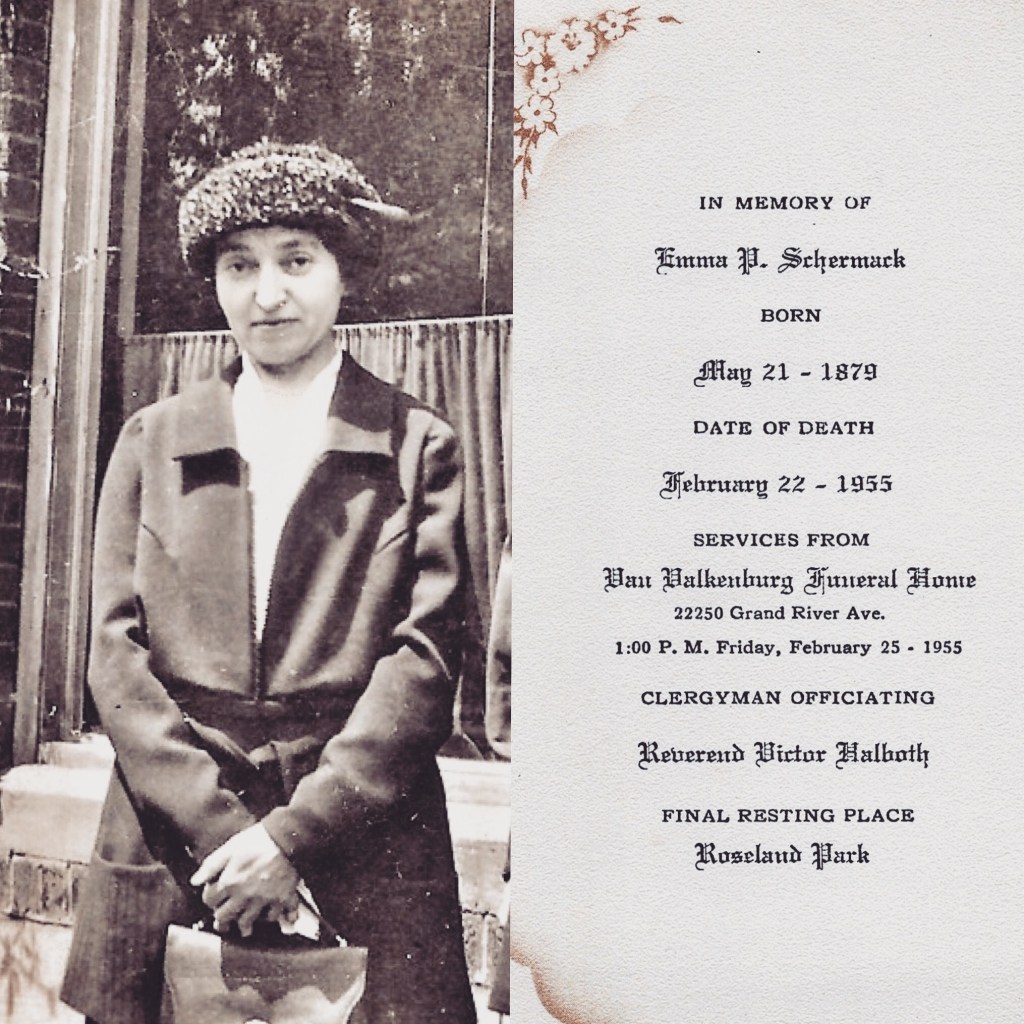 IN MEMORY OF
Emma P. Schermack
BORN
May 21 - 1879
DATE OF DEATH
February 22 - 1955
SERVICES FROM
Van Valkenburg Funeral Home
22250 Grand River Ave.
1:00 P. M. Friday, February 25 - 1955
CLERGYMAN OFFICIATING
Reverend Victor Halboth
FINAL RESTING PLACE
Roseland Park